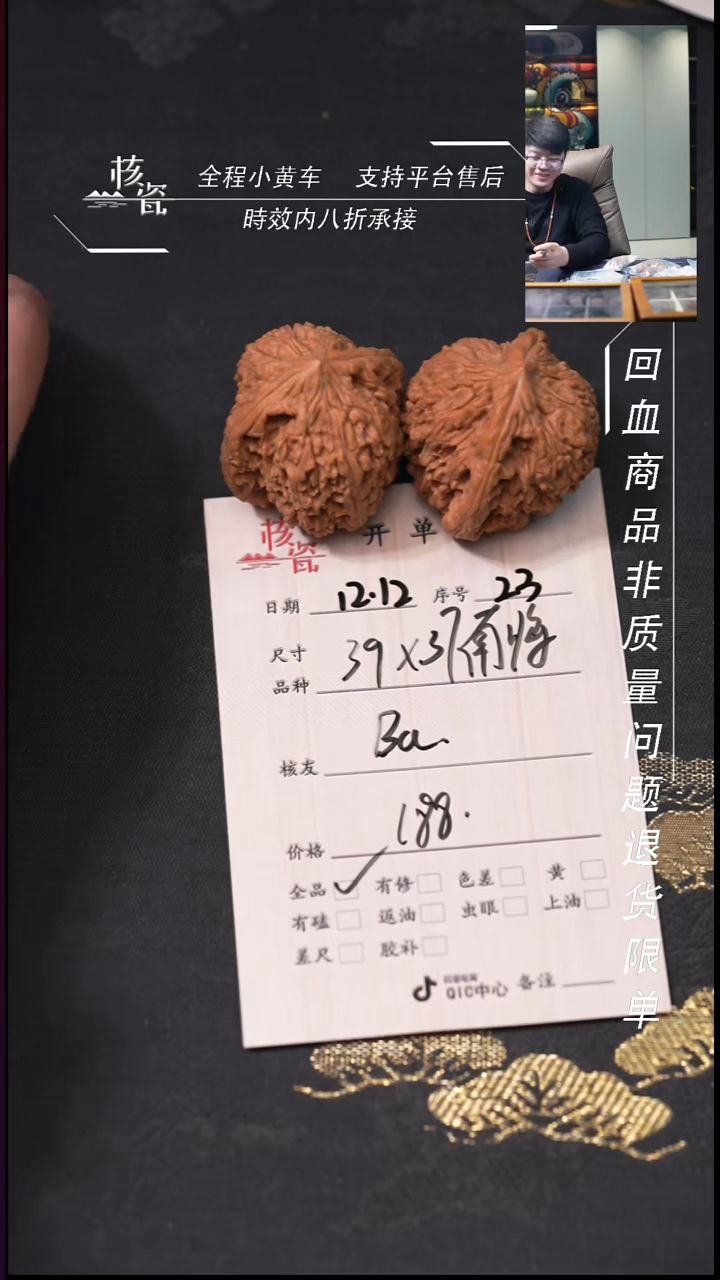 核瓷
全程小黄车 支持平台售后
時效内八折承接
回血商品非质量问题退货限单
核瓷 开单
日期 12.12 序号 23
尺寸
品种 39×37南将
核友 Ba.
价格 188.
全品 ✓ 有修 色差 黄
有磕 返油 虫眼 上油
差尺 胶补
QIC中心 备注